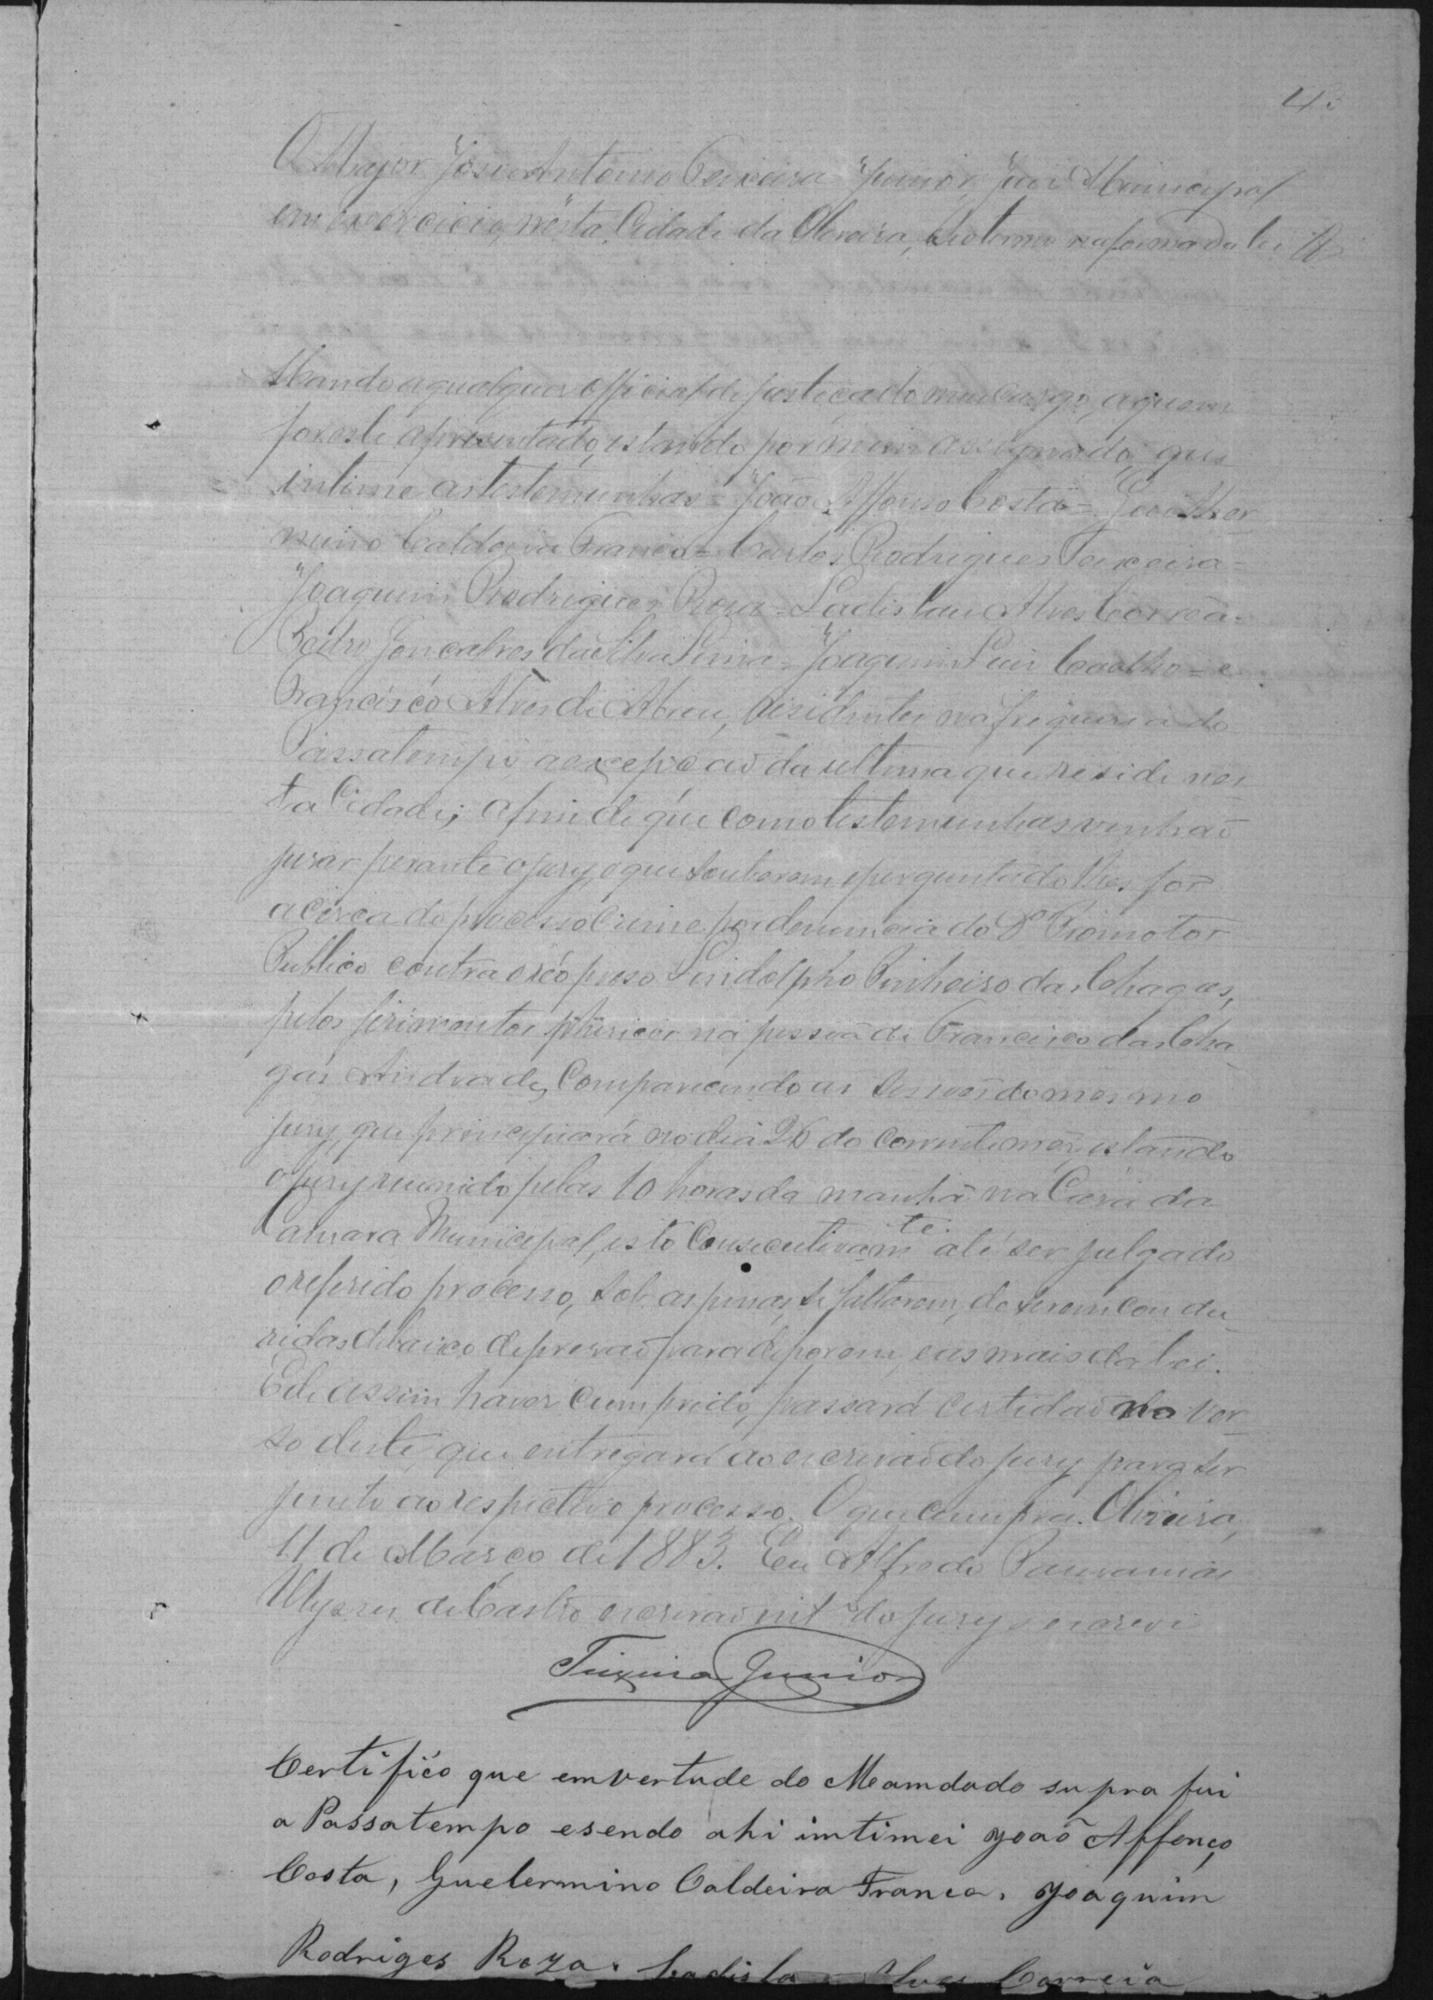 O Major José Antonio Teixeira Junior, Juiz Municipal
em exercicio, nésta Cidade da Oliveira, e seo termo na forma da lei &
Mando a qualquer official de justiça do meu cargo, a quem
for este apresentado, estando por mim assignado, que
intime as testemunhas = João Affonso Costa =
Caldeira Franco = Carlos Rodrigues Teixeira =
Joaquim Rodrigues Roza = Ladislau Alves Corrêa =
Pedro Gonçalves da Silva Lima = Joaquim Luiz Coelho = e
Francisco Alves de Abreu, residentes na freguesia do
Passatempo a excepção da ultima que reside nes
ta Cidade; afim de que como testemunhas venhão
jurar perante o jury, o que souberem e perguntado lhes for
acerca do processo crime por denuncia do Dr Promotor
Publico contra o réo preso Lindolpho Pinheiro das Chagas,
pelos ferimentos phisicos na pessoa de Francisco das Cha
gas Andrade, Comparecendo as sessões do mesmo
jury, que principiará no dia 26 do corrente mês, estando
o jury reunido pelas 10 horas da manhã na Casa da
Camara Municipal, isto Consecutivamte. até ser julgado
o referido processo, sob as penas, se faltarem, de serem condu
zidas debaixo de prizão para deporem, e as mais da lei.
E de assim haver cumprido, passará certidão no ver
so deste, que entregará ao escrivão do jury para ser
junto ao respectivo processo. O que cumpra. Oliveira,
11 de Março de 1883. Eu Alfredo
Ulysses de Castro escrivão int.º do jury, o escrevi
Teixeira Junior
Certifico que em vertude do Meamdado supra fui
a Passatempo e sendo ahi imtimei João Affonço
Costa, Guelermino Caldeira Franco, Joaquim
Rodriges Roza. Ladisla Alves Correia